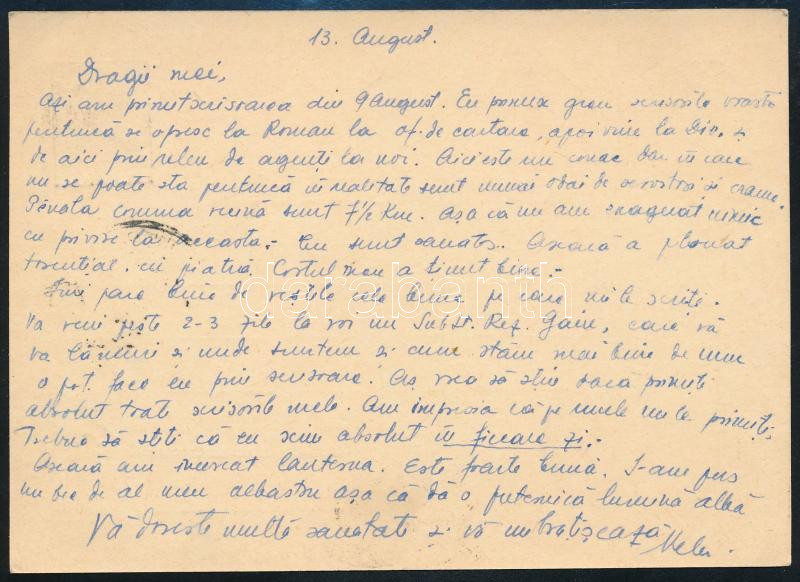 13. August.
Dragii mei,
Azi am primit scrisoarea din 9 August. Eu primesc greu scrisorile voastre
pentrucă se opresc la Roman la of. de cartare, apoi vine la Div. și
de aici prin releu de agenți la noi. Aici este un conac, dar în care
nu se poate sta pentrucă în realitate sunt numai odăi de și crame.
Până la comuna vecină sunt 7½ Km. Așa că nu am exagerat nimic
cu privire la aceasta.- Eu sunt sănătos. Aseară a plouat
torențial, cu piatră. Cortul meu a ținut bine.-
Îmi pare bine de veștile cele bune pe care mi le scrieți.
Va veni peste 2-3 zile la voi un Subl. Rez. Gain, care vă
va lămuri și unde suntem și cum stăm mai bine de cum
o pot face eu prin scrisoare. Aș vrea să știu dacă primiți
absolut toate scrisorile mele. Am impresia că pe unele nu le primiți.
Trebue să știți că eu scriu absolut în fiecare zi.-
Aseară am încercat lanterna. Este foarte bună. I-am pus
un bec de al meu albastru așa că dă o puternică lumină albă
Vă dorește multă sănătate și vă îmbrățișează
darabanth